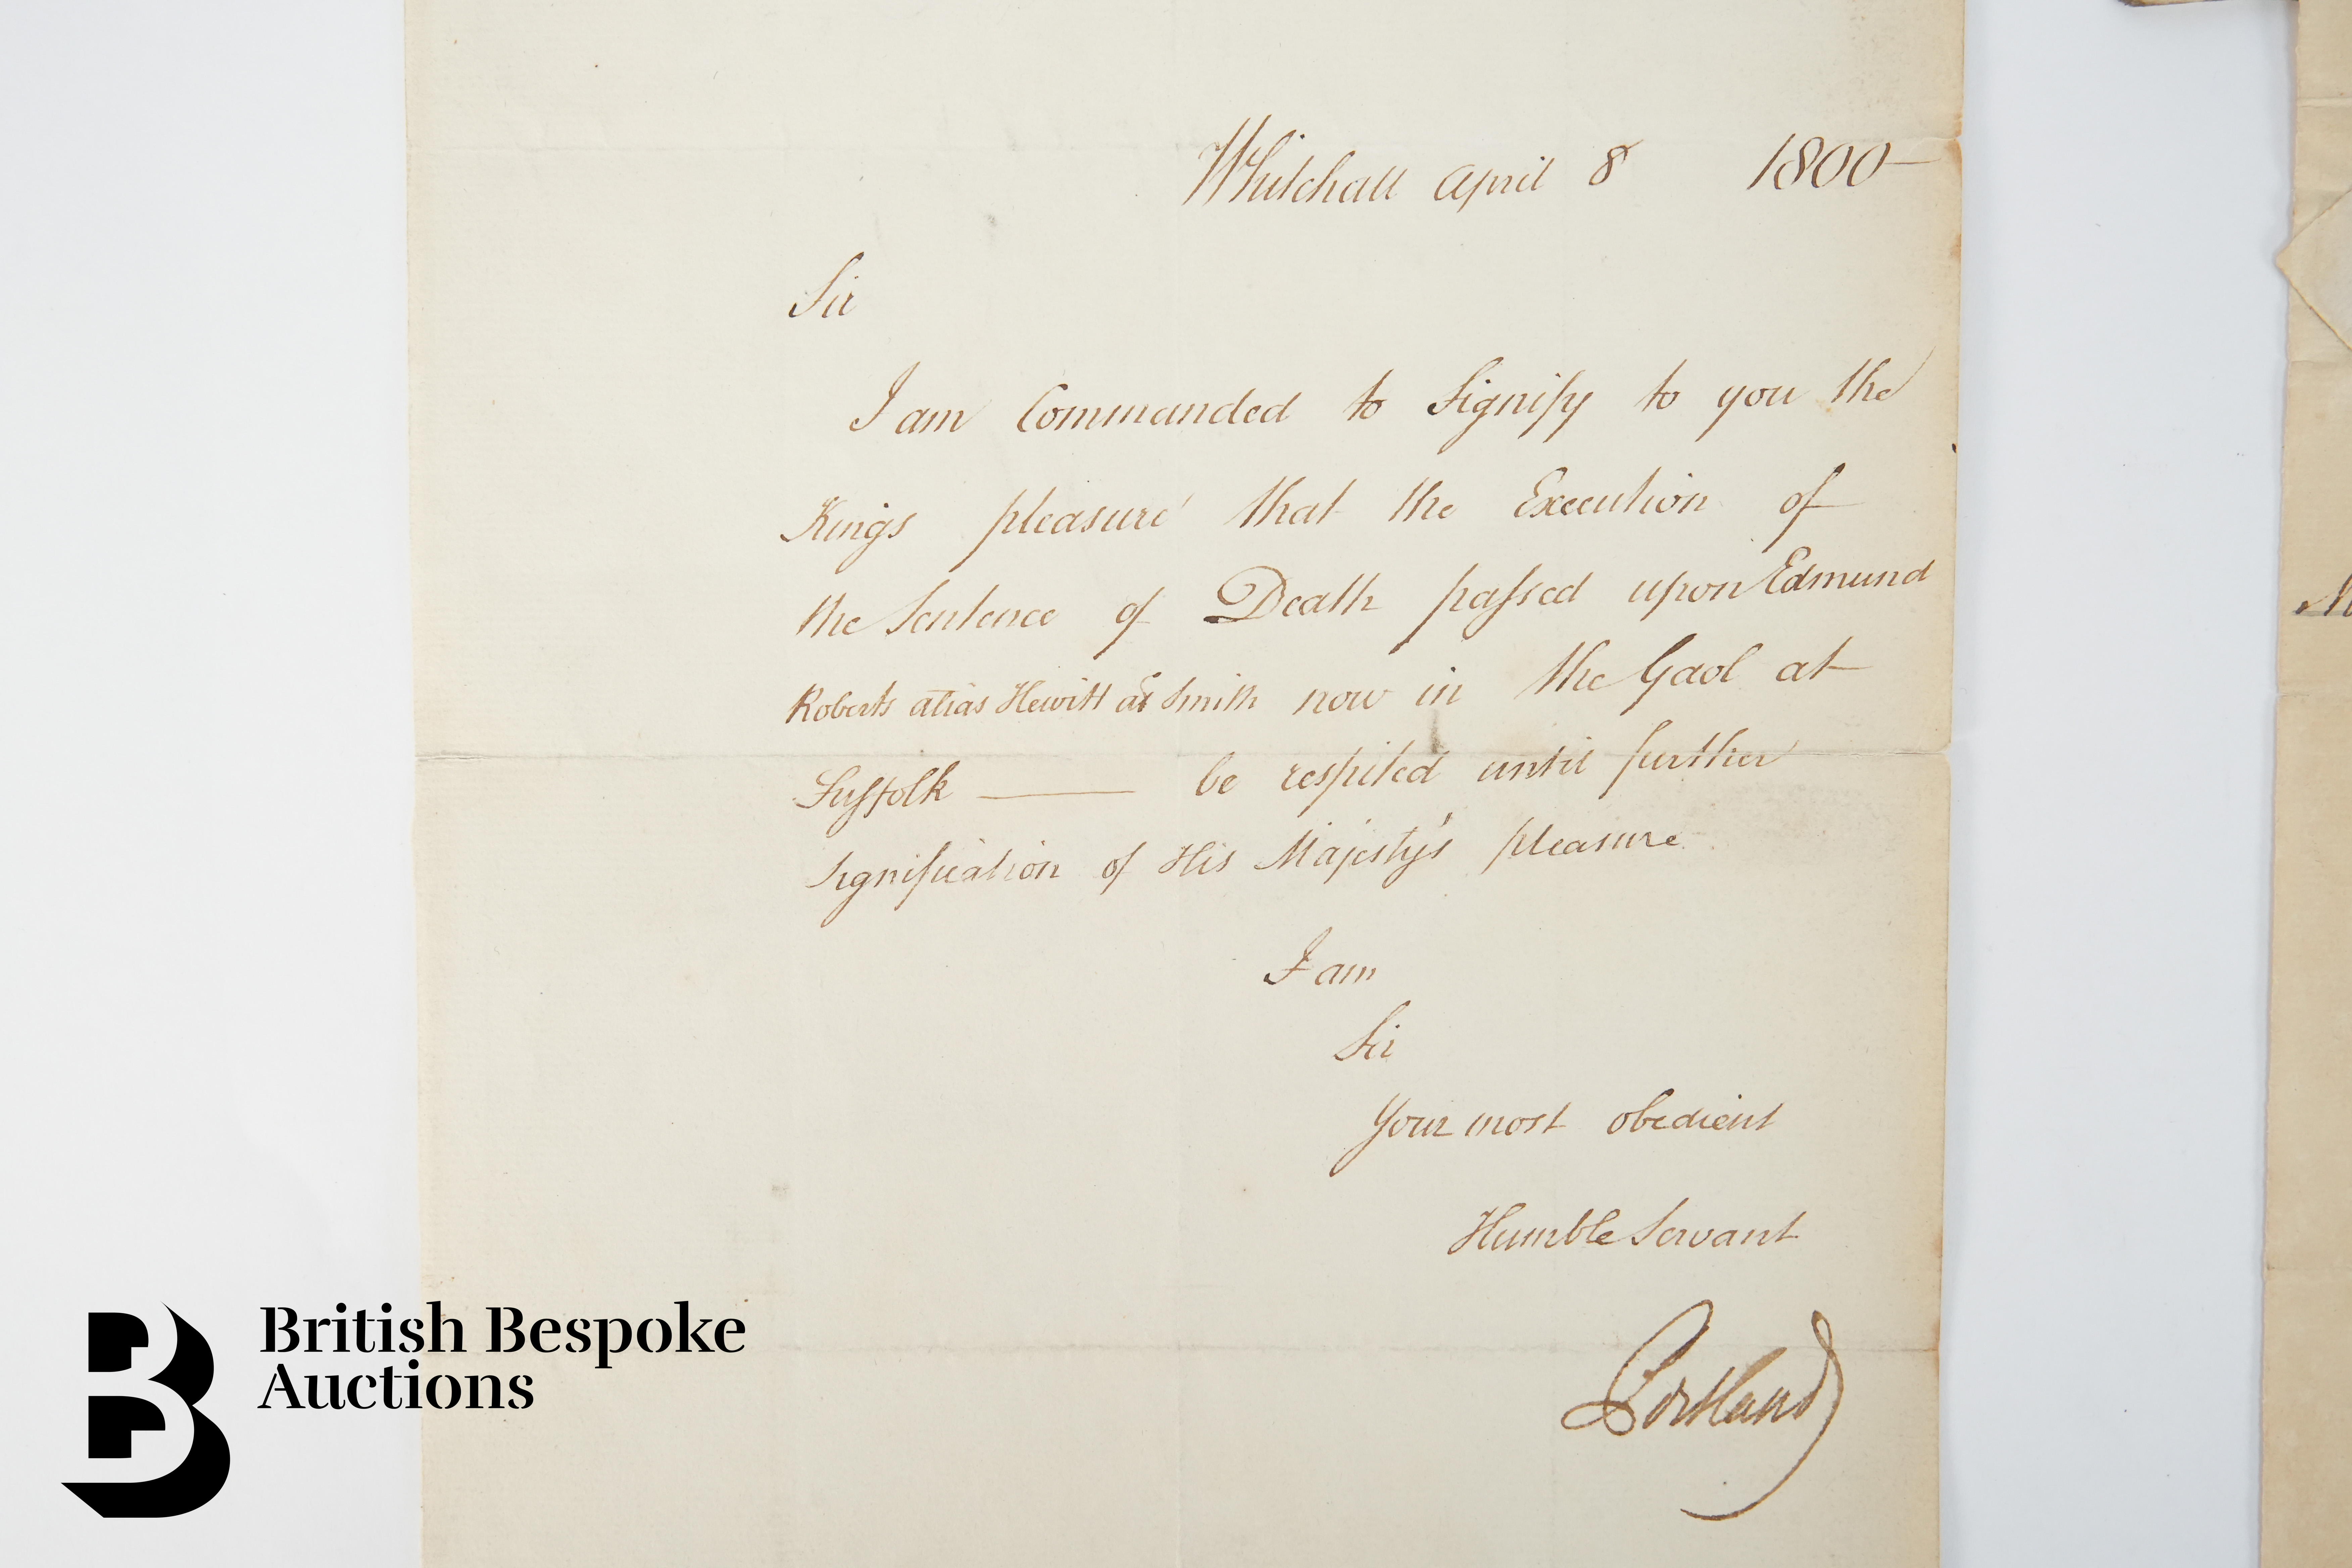 Whitehall April 8 1800
Sir
I am Commanded to Signify to you the
Kings pleasure that the Execution of
the Sentence of Death passed upon Edmund
Roberts alias Hewitt als Smith now in the Gaol at
Suffolk — be respited until further
Signification of His Majesty's pleasure
I am
Sir
Your most obedient
Humble Servant
Portland
British Bespoke
Auctions